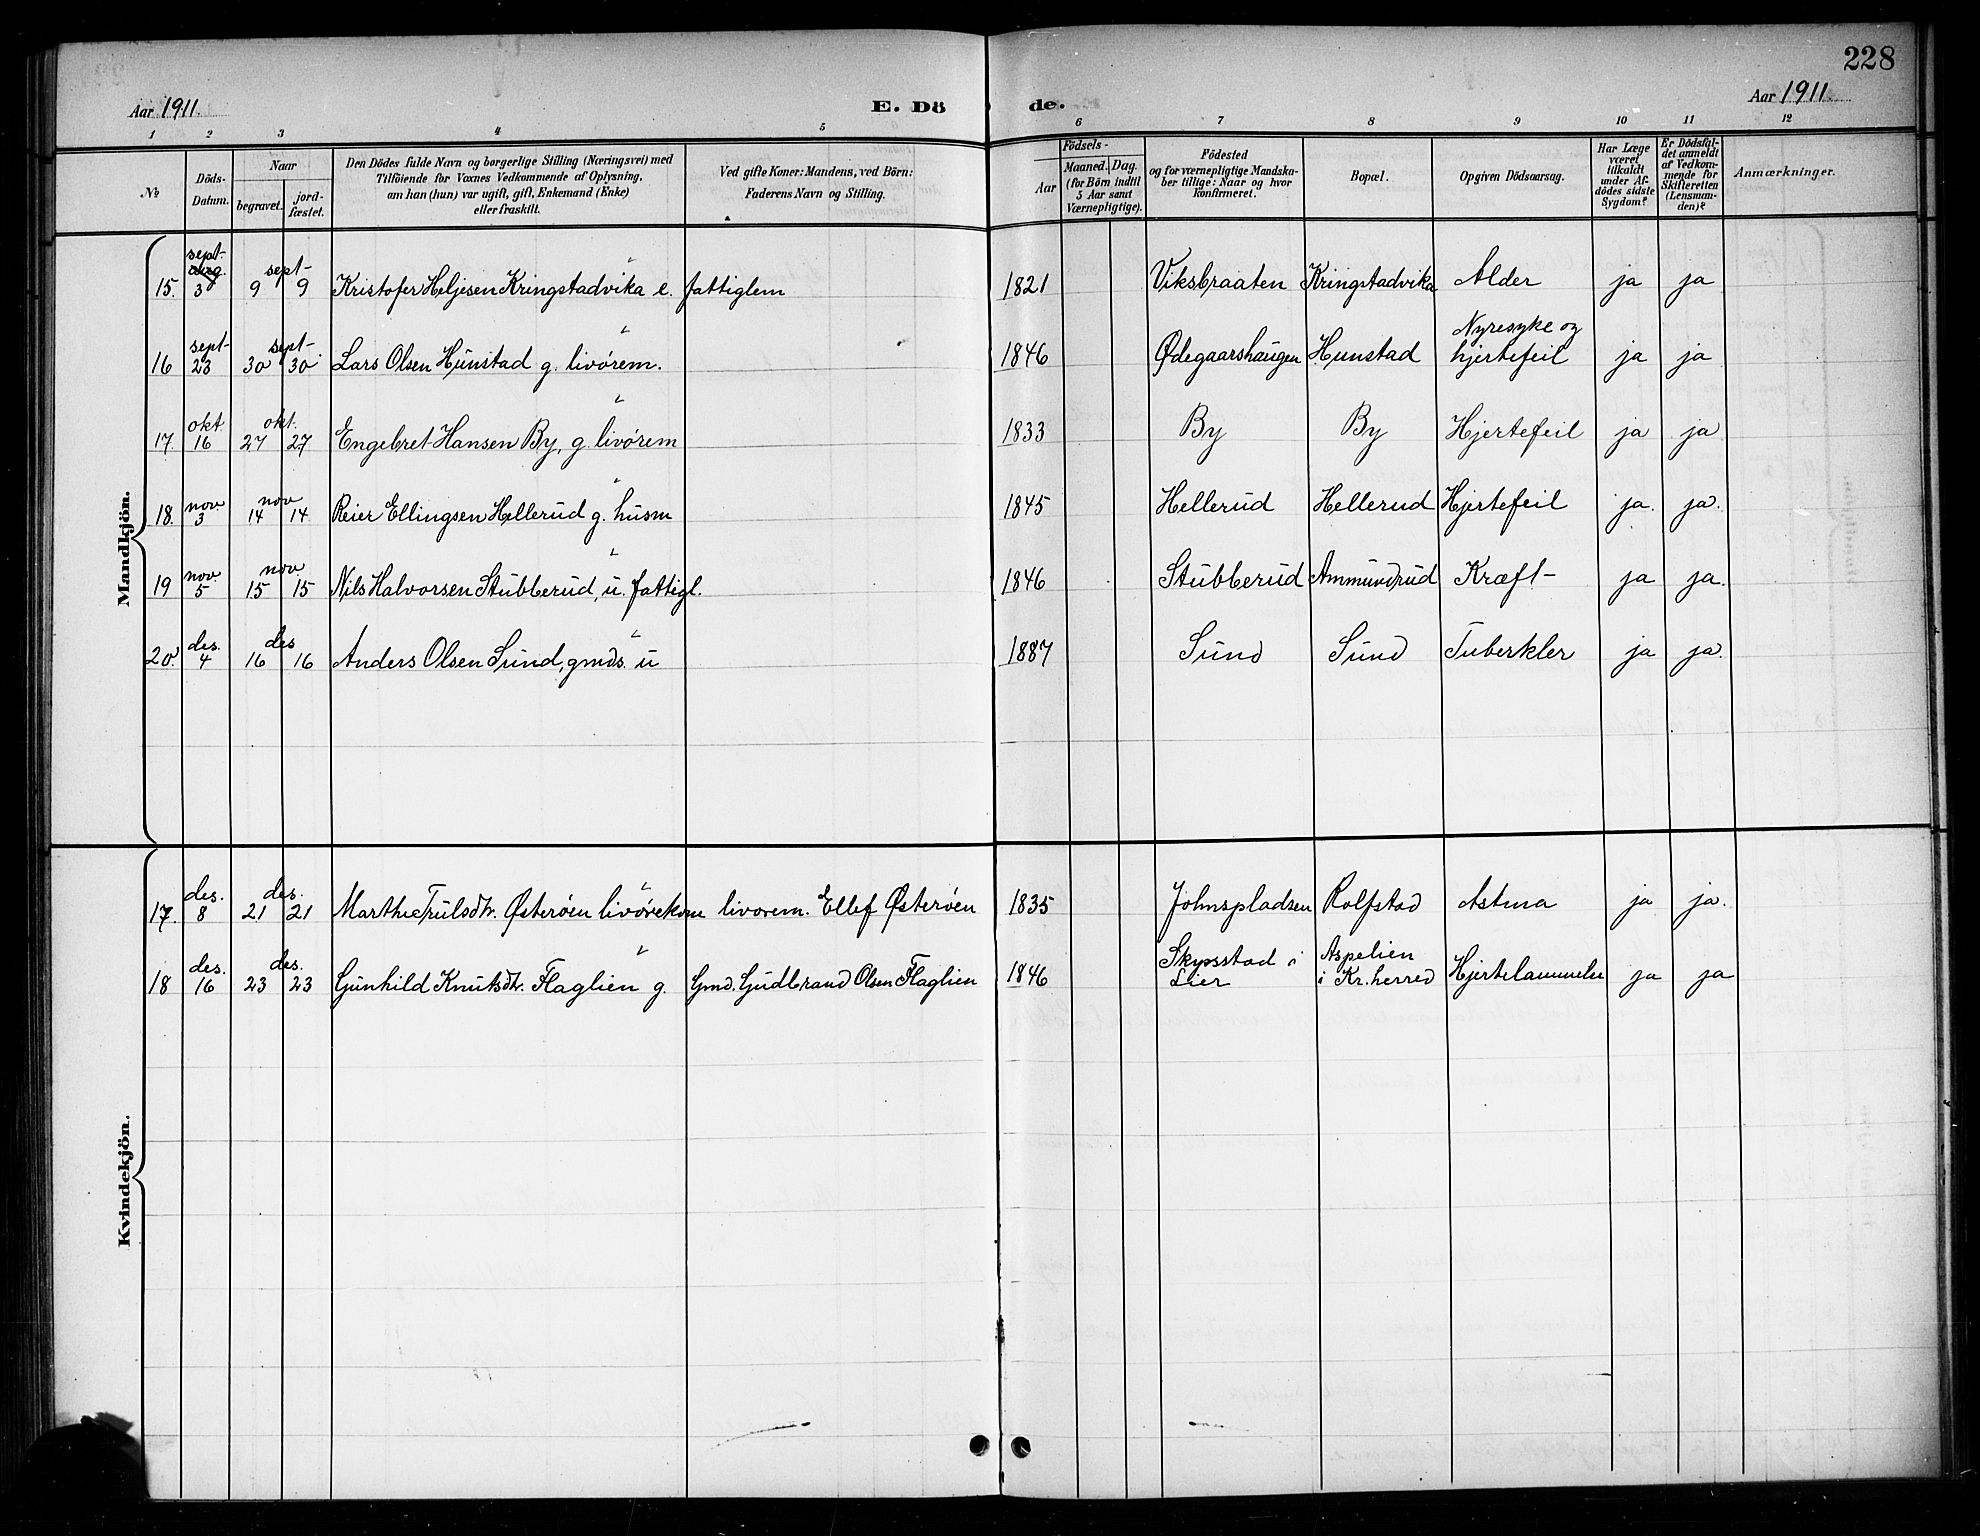 228
Aar 1911. E. Dö de. Aar 1911.
1 2 3 4 5 6 7 8 9 10 11 12
№ Döds-Datum. Naar begravet. jord-fæstet. Den Dödes fulde Navn og borgerlige Stilling (Næringsvei) med Tilföiende for Voxnes Vedkommende af Oplysning, om han (hun) var ugift, gift, Enkemand (Enke) eller fraskilt. Ved gifte Koner: Mandens, ved Börn: Faderens Navn og Stilling. Födsels- Aar Maaned. Dag. (for Börn indtil 5 Aar samt Værnepligtige). Födested og for værnepligtige Mandska-ber tillige: Naar og hvor konfirmeret. Bopæl. Opgiven Dödsaarsag. Har Læge været tilkaldt under Af-dödes sidste Sygdom? Er Dödsfal-det anmeldt af Vedkom-mende for Skifteretten (Lensman-den)? Anmærkninger.
Mandkjön.
15. sept- aug. 3 sept- 9 9 Kristofer Heljesen Kringstadvika e. fattiglem 1821 Viksbraaten Kringstadvika Alder ja ja
16 sept- 23 sept- 30 30 Lars Olsen Hunstad g. livørem. 1846 Ødegaarshaugen Hunstad Nyresyke og hjertefeil ja ja
17. okt. 16 okt. 27 27 Engebret Hansen By, g. livørem 1833 By By Hjertefeil ja ja
18. nov 3 nov 14 14 Reier Ellingsen Hellerud g. husm 1845 Hellerud Hellerud Hjertefeil ja. ja.
19 nov. 5 nov 15 15 Nils Halvorsen Stubberud, u. fattigl. 1846 Stubberud Ammundrud Kræft- ja ja.
20. des. 4 des 16 16 Anders Olsen Sund, gmds. u 1887 Sund Sund Tuberkler ja ja.
Kvindekjön.
17. des. 8 des. 21 21 Marthe Trulsdtr. Østerøen livørekone livørem. Ellef Østerøen 1835 Johnspladsen Rolfstad Astma ja ja.
18 des. 16 des. 23 23 Gunhild Knutsdtr. Flaglien g. Gmd. Gudbrand Olsen Flaglien 1846 i Lier Aspelien i Kr.herred Hjertelammelse ja ja